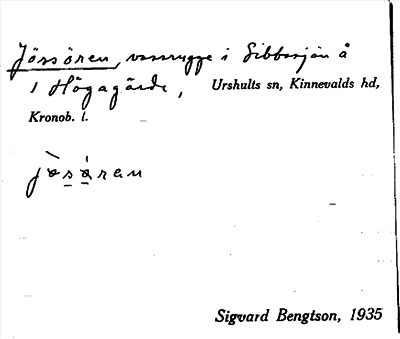 Jössören, vassrugge i Sibbasjön å
1 Högagärde, Urshults sn, Kinnevalds hd,
Kronob. l.
jòsáran
Sigvard Bengtson, 1935